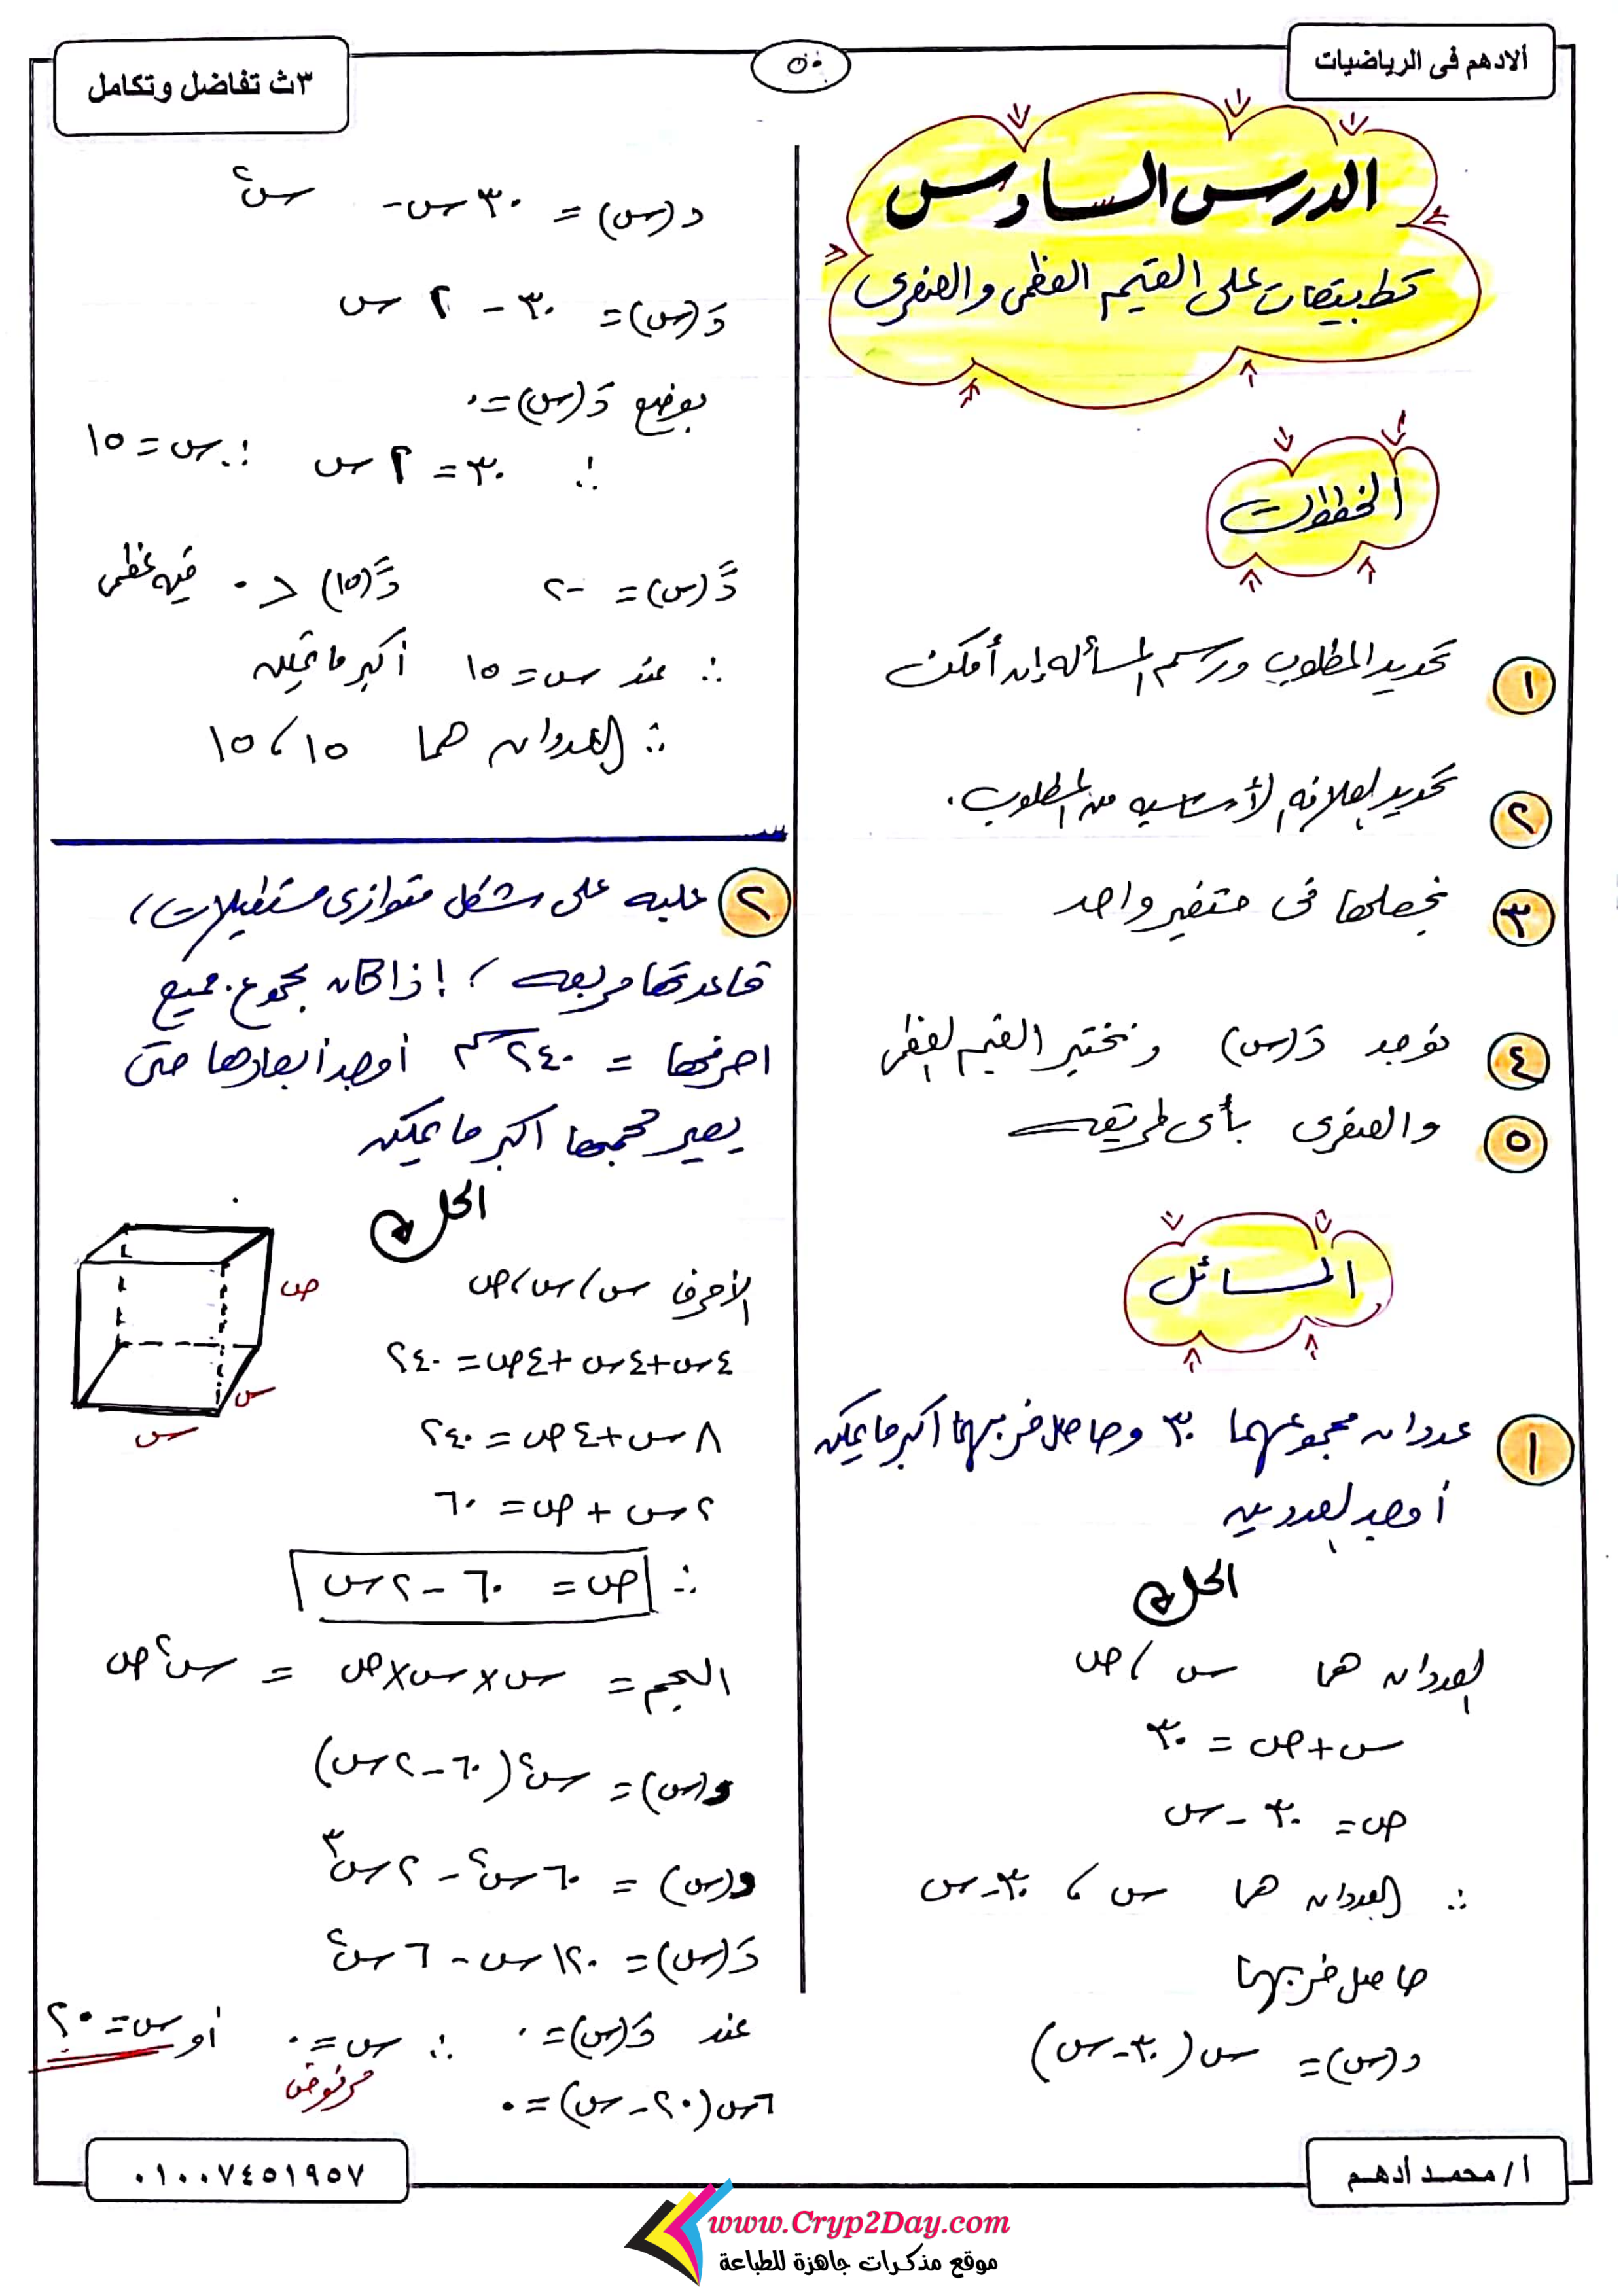 ألادهم فى الرياضيات
٥٠
٣ث تفاضل وتكامل
الدرس السادس
تطبيقات على القيم العظمى والصغرى
الخطوات
١ تحديد المطلوب ورسم المسألة إن أمكن
٢ تحديد العلاقه الأساسيه من المطلوب.
٣ نجعلها فى متغير واحد
٤ نوجد دَ(س) ونختبر القيم العظمى
٥ والصغرى بأى طريقه
المسائل
١ عددان مجموعهما ٣٠ وحاصل ضربهما اكبر ما يمكن
أوجد العددين
الحل
العددان هما س ، ص
س + ص = ٣٠
ص = ٣٠ - س
∴ العددان هما س ، ٣٠ - س
حاصل ضربهما
د(س) = س(٣٠ - س)
د(س) = ٣٠س - س²
دَ(س) = ٣٠ - ٢س
بوضع دَ(س) = ٠
∴ ٣٠ = ٢س ∴ س = ١٥
دً(س) = -٢ دً(١٥) < ٠ قيمه عظمى
∴ عند س = ١٥ أكبر ما يمكن
∴ العددان هما ١٥ ، ١٥
٢ علبه على شكل متوازى مستطيلات ،
قاعدتها مربعه ، إذا كان مجموع جميع
احرفها = ٢٤٠ سم أوجد أبعادها حتى
يصير حجمها اكبر ما يمكن
الحل
ص
س
س
الأحرف س ، س ، ص
٤س + ٤س + ٤ص = ٢٤٠
٨س + ٤ص = ٢٤٠
٢س + ص = ٦٠
∴ ص = ٦٠ - ٢س
الحجم = س × س × ص = س²ص
د(س) = س²(٦٠ - ٢س)
د(س) = ٦٠س² - ٢س³
دَ(س) = ١٢٠س - ٦س²
عند دَ(س) = ٠ ∴ س = ٠ أو س = ٢٠
مرفوض
٦س(٢٠ - س) = ٠
أ / محمد أدهم
٠١٠٠٧٤٥١٩٥٧
www.Cryp2Day.com
موقع مذكرات جاهزة للطباعة